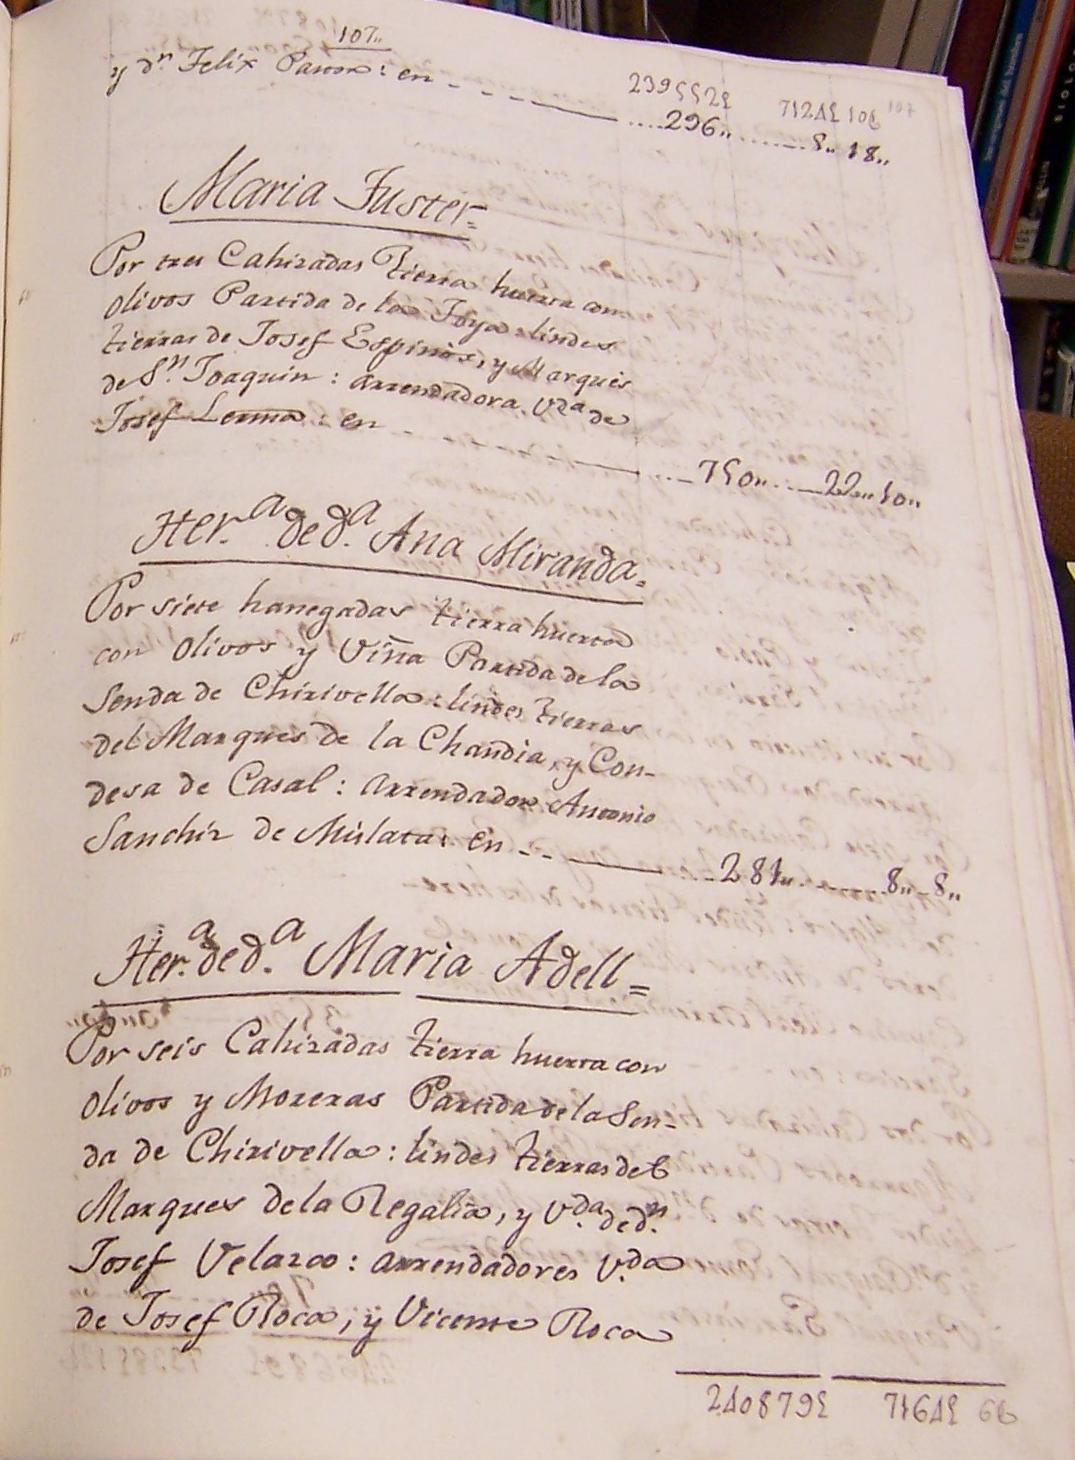 107„
239552£ 7124£ 10
107
y dⁿ Felix Pastor: en ---- 296„ ..... 8„ 18„
Maria Fuster=
Por tres Cahizadas Tierra huerta con
olivos Partida de la Foya: lindes
tierras de Josef Espinos, y Marques
de Sⁿ. Joaquin: arrendadora Vᵈᵃ de
Josef Lerma: en ---- 750„ .... 22„ 10„
Her.ᵃ de d.ᵃ Ana Miranda=
Por siete hanegadas tierra huerta
con olivos y Viña Partida de la
Senda de Chirivella: lindes tierras
del Marques de la Chandia, y Con-
desa de Casal: arrendador Antonio
Sanchiz de Mislata: en ---- 281„ .... 8„ 8„
Her.ᵃ de d.ᵃ Maria Adell=
Por seis Cahizadas tierra huerta con
olivos y Moreras Partida de la Sen-
da de Chirivella: lindes tierras del
Marques de la Regalia, y Vᵈᵃ. de dⁿ.
Josef Velazco: arrendadores V.ᵈᵃ
de Josef Roca, y Vicente Roca
240879£ 7164£ 6